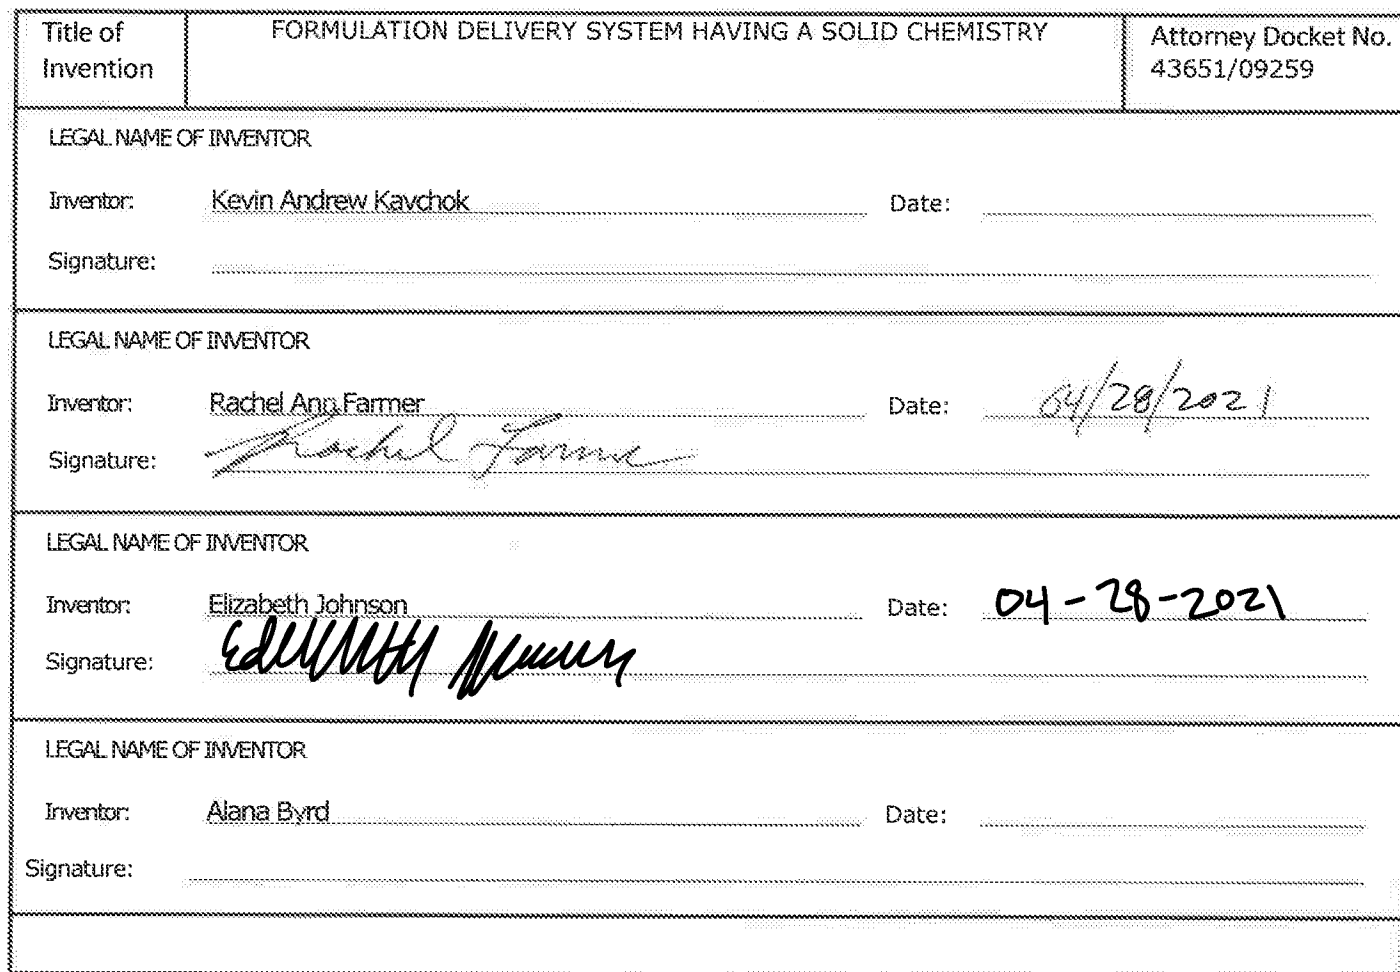 Title of Invention
FORMULATION DELIVERY SYSTEM HAVING A SOLID CHEMISTRY
Attorney Docket No.
43651/09259
LEGAL NAME OF INVENTOR
Inventor: Kevin Andrew Kavchok Date:
Signature:
LEGAL NAME OF INVENTOR
Inventor: Rachel Ann Farmer Date: 04/28/2021
Signature: Rachel Farmer
LEGAL NAME OF INVENTOR
Inventor: Elizabeth Johnson Date: 04-28-2021
Signature:
LEGAL NAME OF INVENTOR
Inventor: Alana Byrd Date:
Signature: